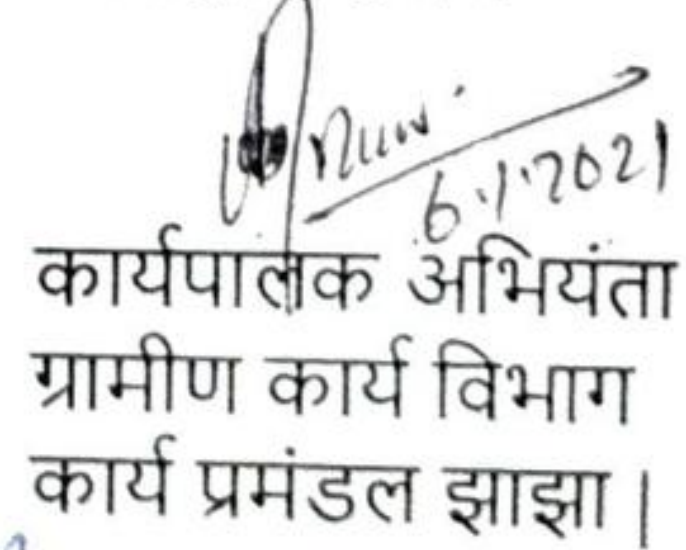 6.1.2021
कार्यपालक अभियंता
ग्रामीण कार्य विभाग
कार्य प्रमंडल झाझा |